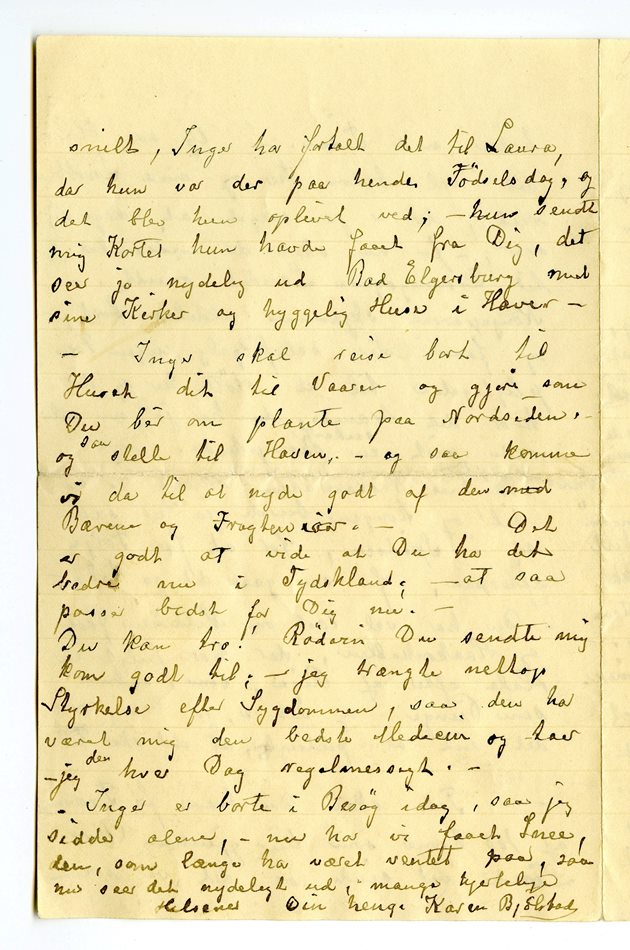 snilt, Inger har fortalt det til Laura,
da hun var der paa hendes Födselsdag, og
det blev hun oplivet ved; - hun sendte
mig Kortet hun havde faaet fra Dig, det
seer jo nydelig ud Bad Elgersburg med
sine Kirker og hyggelig Huse i Haver -
- Inger skal reise bort til
Huset dit til Vaaren og gjøre som
Du bér om plante paa Nordsiden. -
og saa stelle til Haven, - og saa komme
vi da til at nyde godt af den med
Bærene og Frugten iaar. - Det
er godt at vide at Du har det
bedre nu i Tydskland; - at saa
passer bedst for Dig nu. -
Du kan tro! Rödvin Du sendte mig
kom godt til; - jeg trængte nettop
Styrkelse efter Sygdommen, saa den har
været mig den bedste Medecin og taer
- jeg den hver Dag regelmessigt. -
- Inger er borte i Besög idag, saa jeg
sidder alene, - nu har vi faaet Snee,
den, som længe har været ventet paa, saa
nu seer det nydeligt ud, mange hjertelige
Hilsener Din heng. Karen Bjölstad